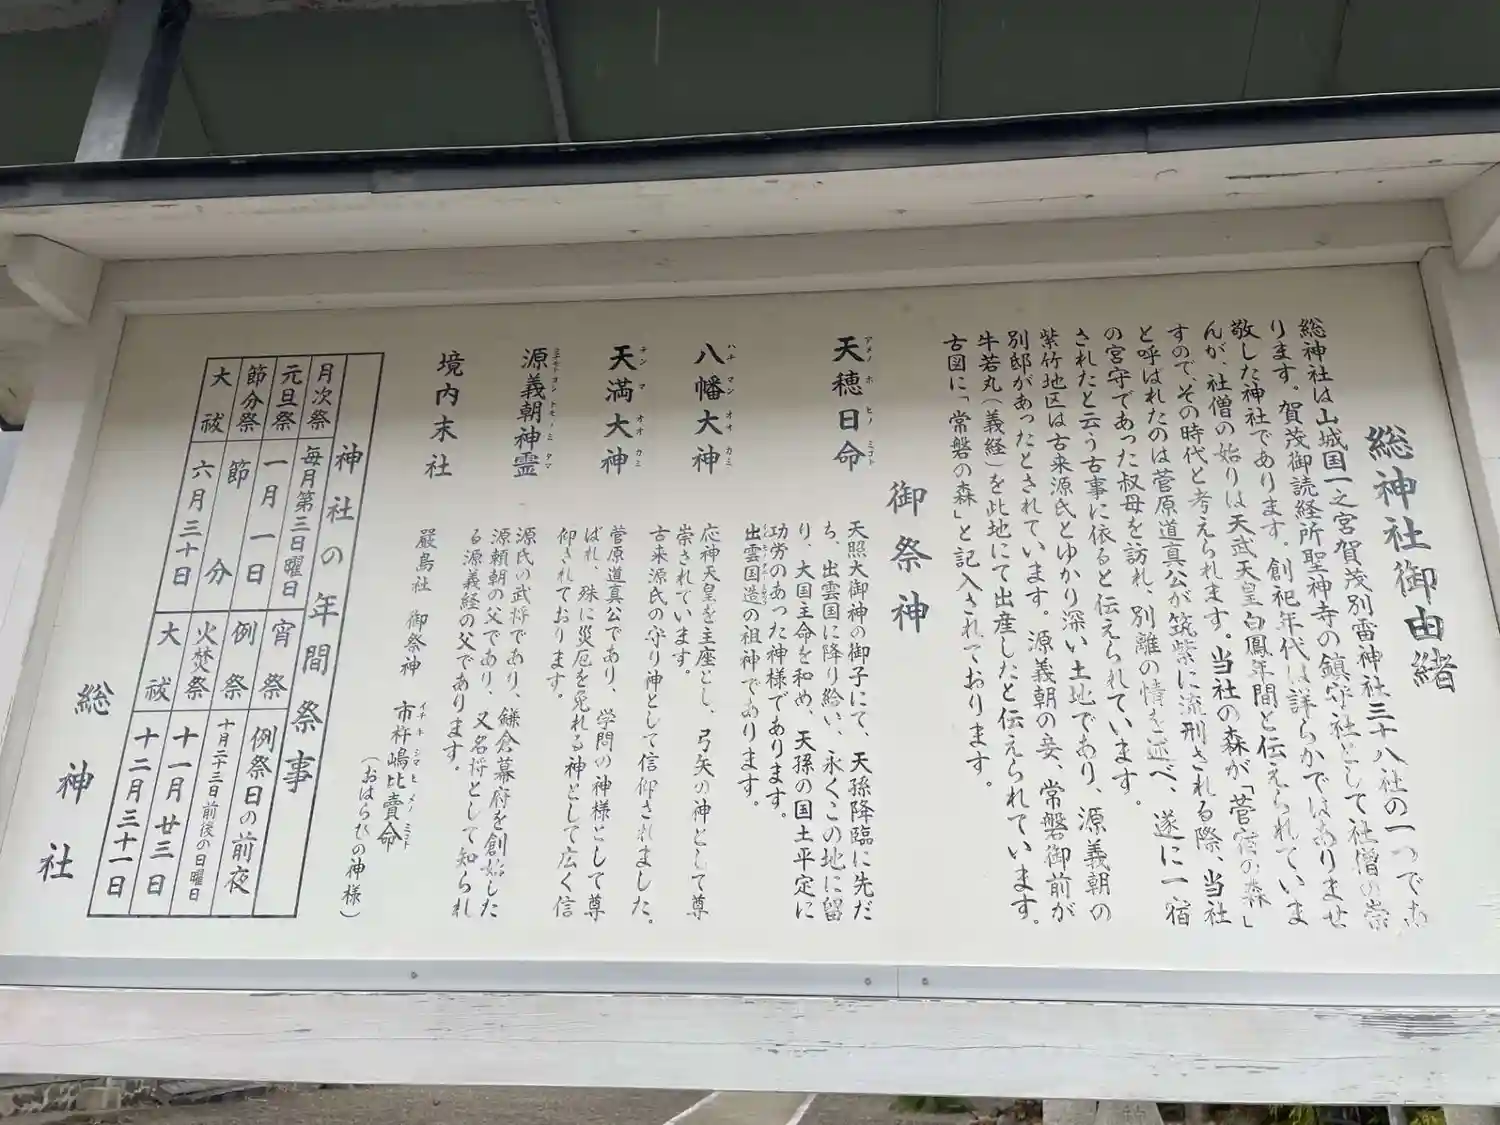 総神社御由緒
総神社は山城国一之宮賀茂別雷神社三十八社の一つであ
ります。賀茂御読経所聖神寺の鎮守社として社僧の崇
敬した神社であります。創祀年代は詳らかではありませ
んが、社僧の始りは天武天皇白鳳年間と伝えられていま
すので、その時代と考えられます。当社の森が「菅宿の森」
と呼ばれたのは菅原道真公が筑紫に流刑される際、当社
の宮守であった叔母を訪れ、別離の情を述べ、遂に一宿
されたと云う古事に依ると伝えられています。
紫竹地区は古来源氏とゆかり深い土地であり、源義朝の
別邸があったとされています。源義朝の妾、常磐御前が
牛若丸(義経)を此地にて出産したと伝えられています。
古図に「常磐の森」と記入されております。
御祭神
天穂日命
アメノホヒノミコト
天照大御神の御子にて、天孫降臨に先だ
ち、出雲国に降り給い、永くこの地に留
り、大国主命を和め、天孫の国土平定に
功労のあった神様であります。
出雲国造の祖神であります。
八幡大神
ハチマンオオカミ
応神天皇を主座とし、弓矢の神として尊
崇されています。
古来源氏の守り神として信仰されました。
天満大神
テンマオオカミ
菅原道真公であり、学問の神様として尊
ばれ、殊に災厄を免れる神として広く信
仰されております。
源義朝神霊
ミナモトヨシトモノミタマ
源氏の武将であり、鎌倉幕府を創始した
源頼朝の父であり、又名将として知られ
る源義経の父であります。
境内末社
厳島社 御祭神 市杵嶋比賣命
イチキシマヒメノミコト
(おはらひの神様)
神社の年間祭事
月次祭 毎月第三日曜日
元旦祭 一月一日
節分祭 節分
大祓 六月三十日
宵祭 例祭日の前夜
例祭
火焚祭 十一月廿三日
大祓 十二月三十一日
総神社